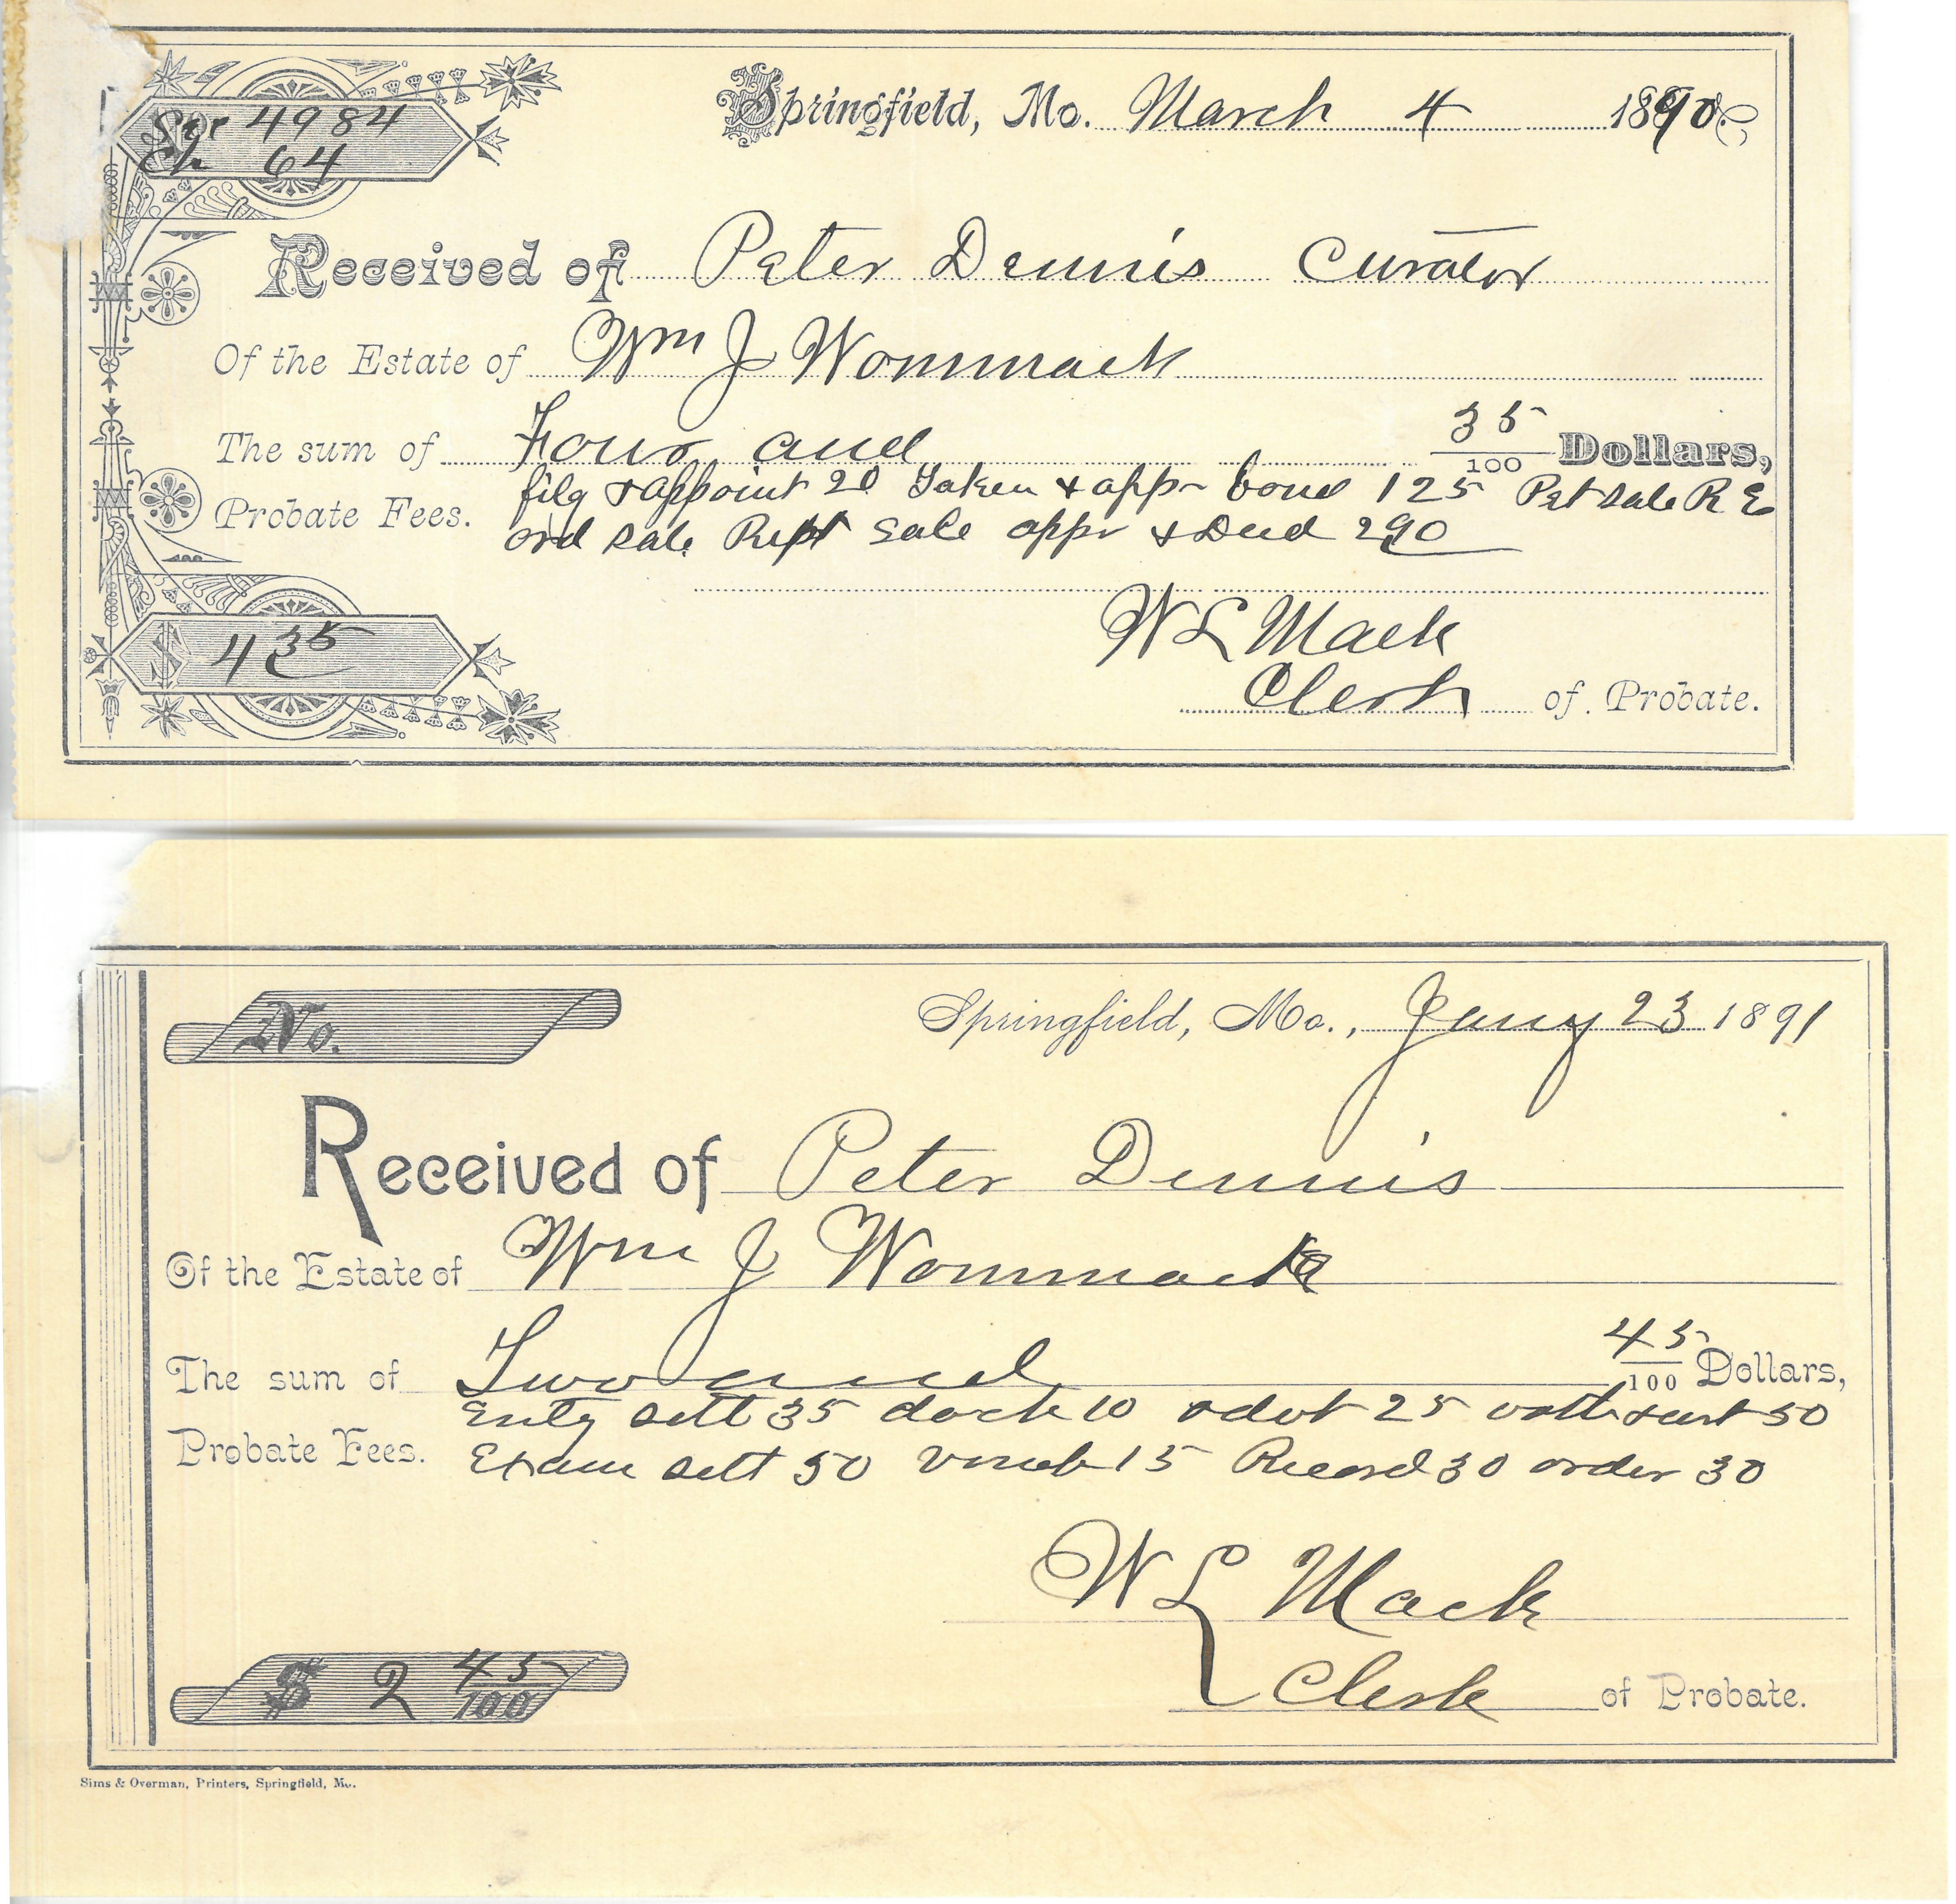 4984
64
Springfield, Mo. March 4 1890
Received of Peter Dennis Curator
Of the Estate of Wm J Wommack
The sum of Four and 35/100 Dollars,
Probate Fees. filg & appoint 20 Taken & appr bond 125 Pet sale R E
ord sale Rept sale appr & Deed 290
W L Mack
$ 4 35
Clerk of Probate.
No.
Springfield, Mo., Jany 23 1891
Received of Peter Dennis
Of the Estate of Wm J Wommack
The sum of Two and 45/100 Dollars,
Probate Fees. Entg sett 35 dock 10 advt 25 oath & cert 50
Exam sett 50 vouch 15 Record 30 order 30
W L Mack
$ 2 45/100
Clerk of Probate.
Sims & Overman, Printers, Springfield, Mo.